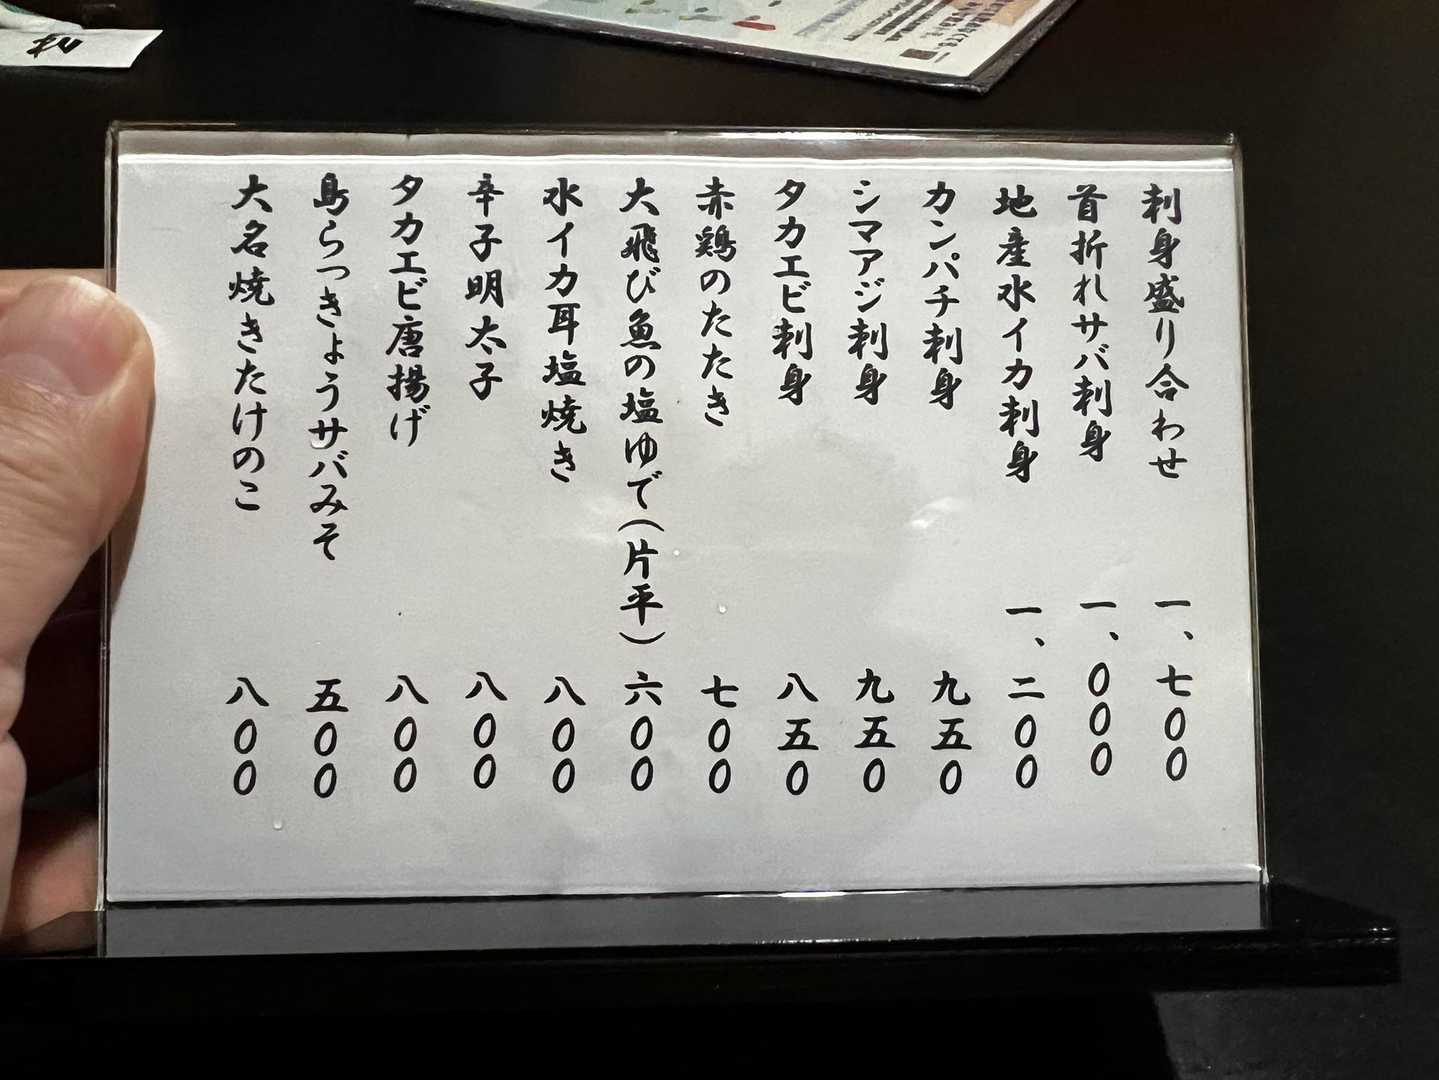 刺身盛り合わせ 一、七00
首折れサバ刺身 一、000
地産水イカ刺身 一、二00
カンパチ刺身 九五0
シマアジ刺身 九五0
タカエビ刺身 八五0
赤鶏のたたき 七00
大飛び魚の塩ゆで(片平) 六00
水イカ耳塩焼き 八00
辛子明太子 八00
タカエビ唐揚げ 八00
島らっきょうサバみそ 五00
大名焼きたけのこ 八00